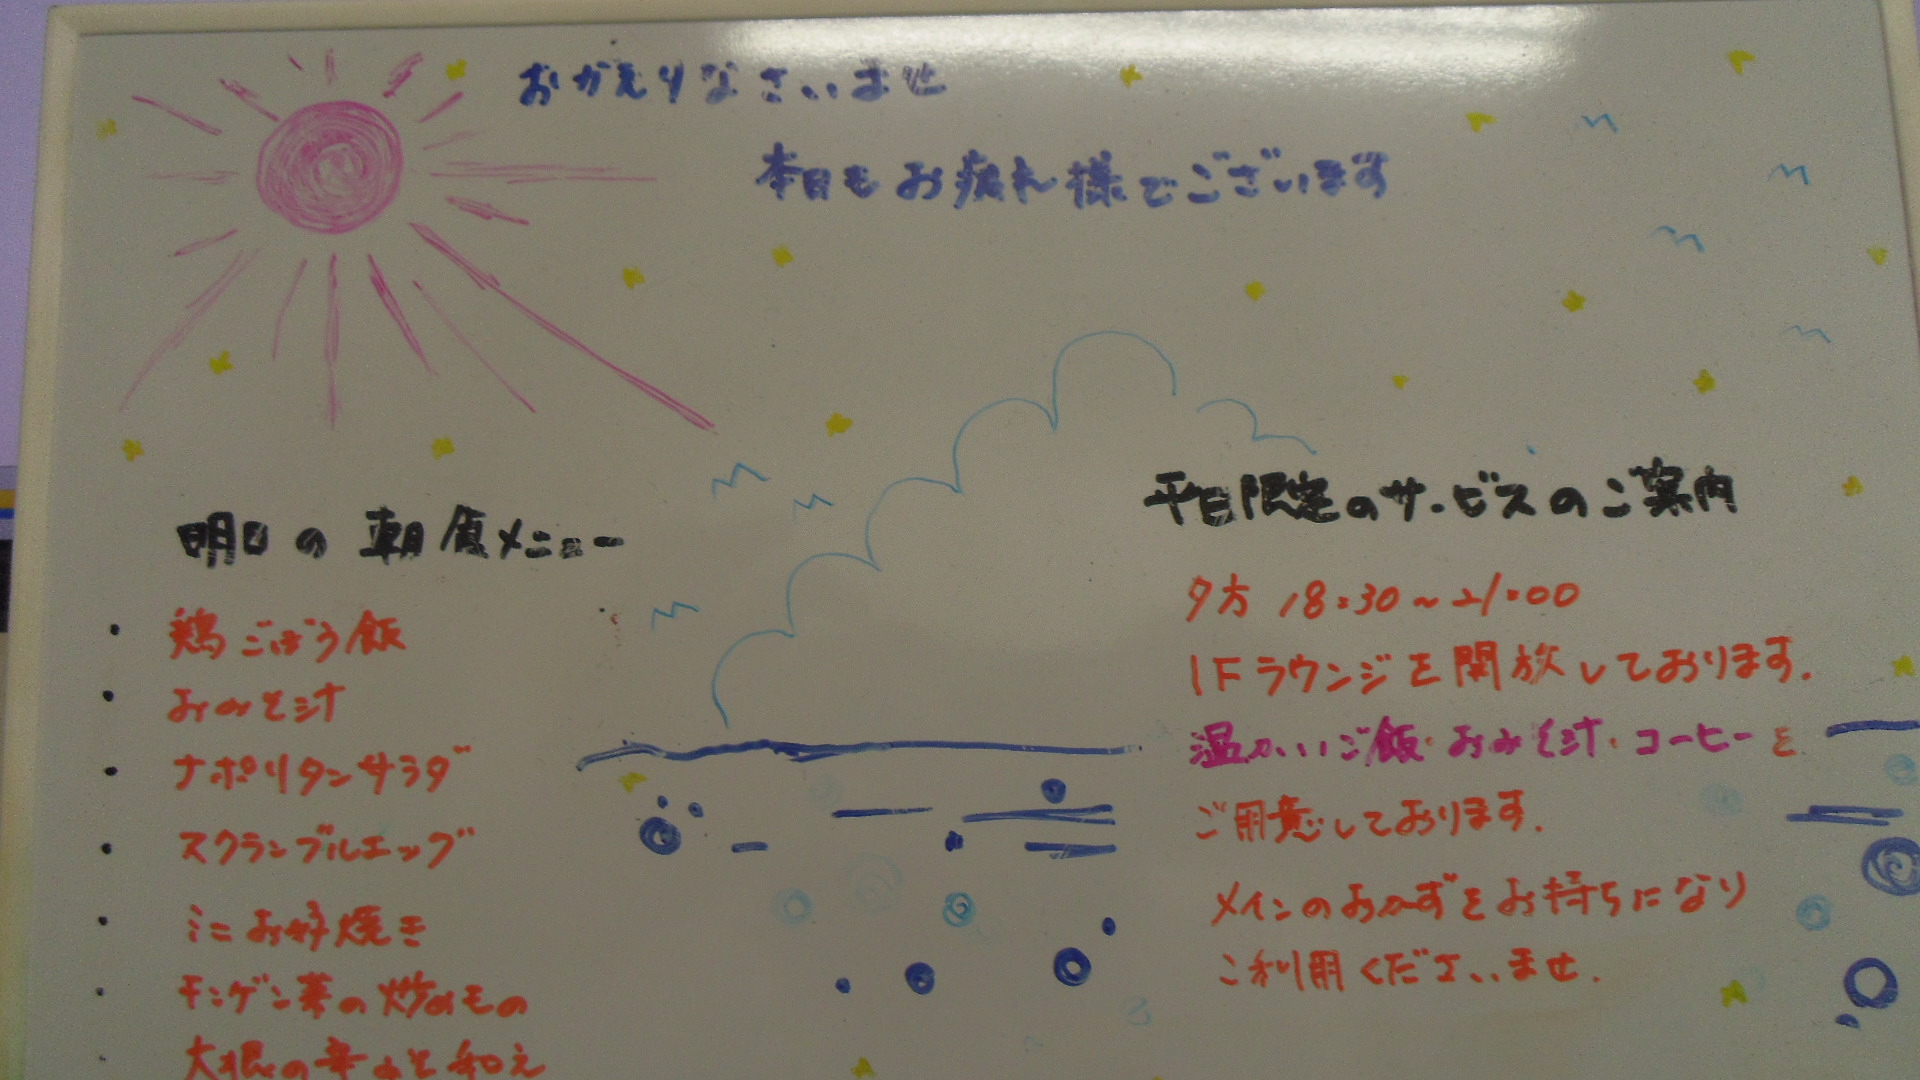 おかえりなさいませ
本日もお疲れ様でございます
明日の朝食メニュー
・鶏ごぼう飯
・おみそ汁
・ナポリタンサラダ
・スクランブルエッグ
・ミニお好焼き
・チンゲン菜の炒めもの
・大根の辛みそ和え
平日限定のサービスのご案内
夕方 18:30~21:00
1Fラウンジを開放しております.
温かいご飯・おみそ汁・コーヒーを
ご用意しております.
メインのおかずをお持ちになり
ご利用くださいませ.